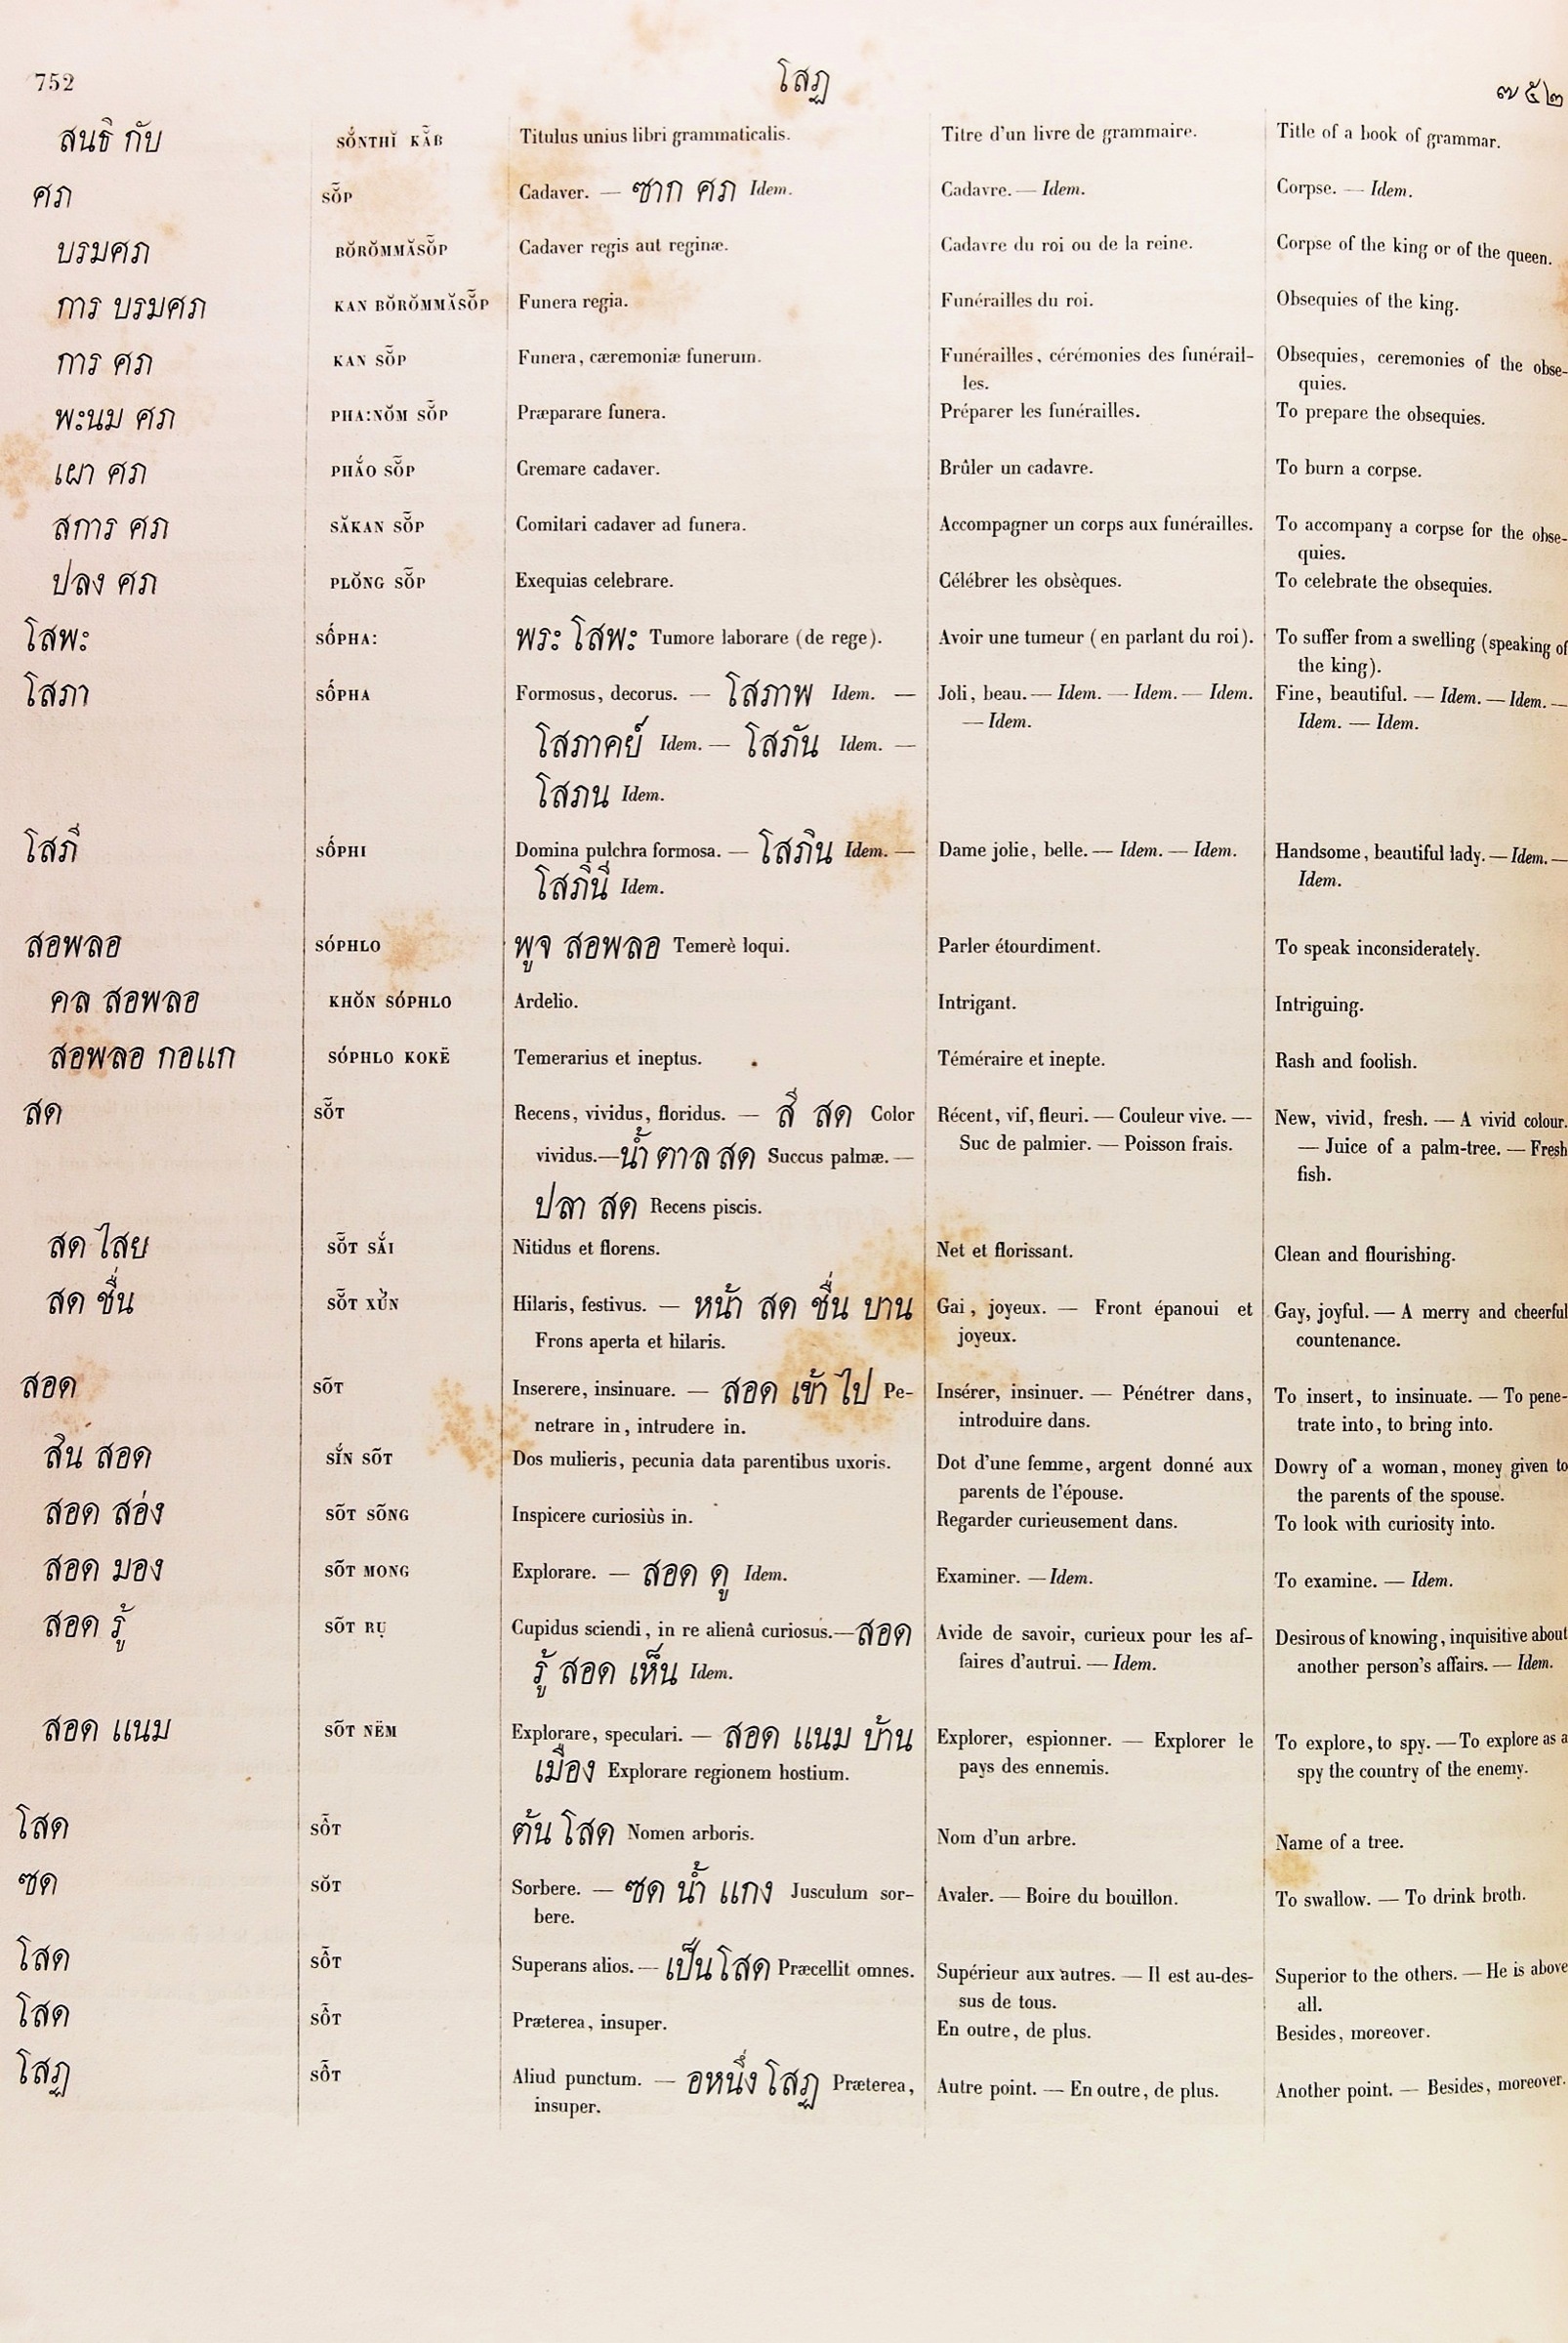 752 โสฏ ๗๕๒
สนธิ กับ SŎ́NTHĬ KĂB Titulus unius libri grammaticalis. Titre d'un livre de grammaire. Title of a book of grammar.
ศภ SŎ̃P Cadaver. — ซาก ศภ Idem. Cadavre. — Idem. Corpse. — Idem.
บรมศภ BŎRŎMMĂSŎ̃P Cadaver regis aut reginæ. Cadavre du roi ou de la reine. Corpse of the king or of the queen.
การ บรมศภ KAN BŎRŎMMĂSŎ̃P Funera regia. Funérailles du roi. Obsequies of the king.
การ ศภ KAN SŎ̃P Funera, cæremoniæ funerum. Funérailles, cérémonies des funérail- Obsequies, ceremonies of the obse-
les. quies.
พะนม ศภ PHA:NŎM SŎ̃P Præparare funera. Préparer les funérailles. To prepare the obsequies.
เผา ศภ PHẮO SŎ̃P Cremare cadaver. Brûler un cadavre. To burn a corpse.
สการ ศภ SĂKAN SŎ̃P Comitari cadaver ad funera. Accompagner un corps aux funérailles. To accompany a corpse for the obse-
quies.
ปลง ศภ PLŎNG SŎ̃P Exequias celebrare. Célébrer les obsèques. To celebrate the obsequies.
โสพะ SỐPHA: พระ โสพะ Tumore laborare (de rege). Avoir une tumeur (en parlant du roi). To suffer from a swelling (speaking of
the king).
โสภา SỐPHA Formosus, decorus. — โสภาพ Idem. — Joli, beau. — Idem. — Idem. — Idem. Fine, beautiful. — Idem. — Idem. —
— Idem. Idem. — Idem.
โสภาคย์ Idem. — โสภัน Idem. —
โสภน Idem.
โสภี SỐPHI Domina pulchra formosa. — โสภิน Idem. — Dame jolie, belle. — Idem. — Idem. Handsome, beautiful lady. — Idem. —
โสภินี Idem. Idem.
สอพลอ SÓPHLO พูจ สอพลอ Temerè loqui. Parler étourdiment. To speak inconsiderately.
คล สอพลอ KHŎN SÓPHLO Ardelio. Intrigant. Intriguing.
สอพลอ กอแก SÓPHLO KOKË Temerarius et ineptus. Téméraire et inepte. Rash and foolish.
สด SŎ̃T Recens, vividus, floridus. — สี สด Color Récent, vif, fleuri. — Couleur vive. — New, vivid, fresh. — A vivid colour.
vividus.— น้ำ ตาล สด Succus palmæ. — Suc de palmier. — Poisson frais. — Juice of a palm-tree. — Fresh
fish.
ปลา สด Recens piscis.
สด ไสย SŎ̃T SẮI Nitidus et florens. Net et florissant. Clean and flourishing.
สด ชื่น SŎ̃T XŬ̀N Hilaris, festivus. — หน้า สด ชื่น บาน Gai, joyeux. — Front épanoui et Gay, joyful. — A merry and cheerful
Frons aperta et hilaris. joyeux. countenance.
สอด SÕT Inserere, insinuare. — สอด เข้า ไป Pe- Insérer, insinuer. — Pénétrer dans, To insert, to insinuate. — To pene-
netrare in, intrudere in. introduire dans. trate into, to bring into.
สิน สอด SĬ́N SÕT Dos mulieris, pecunia data parentibus uxoris. Dot d'une femme, argent donné aux Dowry of a woman, money given to
parents de l'épouse. the parents of the spouse.
สอด ส่อง SÕT SÕNG Inspicere curiosiùs in. Regarder curieusement dans. To look with curiosity into.
สอด มอง SÕT MONG Explorare. — สอด ดู Idem. Examiner. — Idem. To examine. — Idem.
สอด รู้ SÕT RỤ Cupidus sciendi, in re alienâ curiosus.— สอด Avide de savoir, curieux pour les af- Desirous of knowing, inquisitive about
รู้ สอด เห็น Idem. faires d'autrui. — Idem. another person's affairs. — Idem.
สอด แนม SÕT NËM Explorare, speculari. — สอด แนม บ้าน Explorer, espionner. — Explorer le To explore, to spy. — To explore as a
เมือง Explorare regionem hostium. pays des ennemis. spy the country of the enemy.
โสด SỖT ต้น โสด Nomen arboris. Nom d'un arbre. Name of a tree.
ซด SŎT Sorbere. — ซด น้ำ แกง Jusculum sor- Avaler. — Boire du bouillon. To swallow. — To drink broth.
bere.
โสด SỖT Superans alios. — เป็น โสด Præcellit omnes. Supérieur aux autres. — Il est au-des- Superior to the others. — He is above
sus de tous. all.
โสด SỖT Præterea, insuper. En outre, de plus. Besides, moreover.
โสฏ SỖT Aliud punctum. — อหนึ่ง โสฏ Præterea, Autre point. — En outre, de plus. Another point. — Besides, moreover.
insuper.